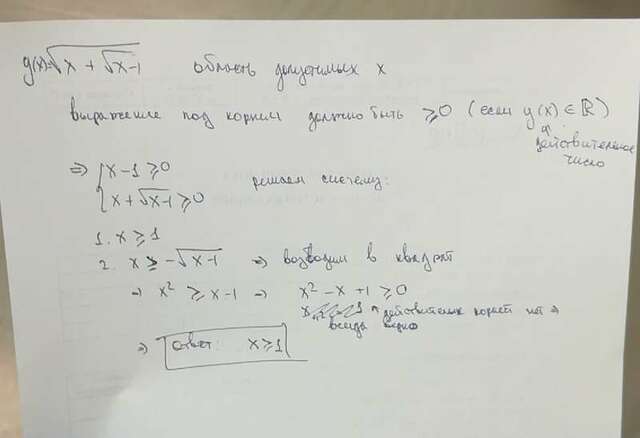 y(x)=√(x + √(x-1)) область допустимых x
выражение под корнем должно быть ≥0 (если y(x) ∈ ℝ)
действительное
число
⇒ { x-1 ≥0 решаем систему:
x+√(x-1) ≥0
1. x ≥ 1
2. x ≥ -√(x-1) ⇒ возводим в квадрат
⇒ x² ≥ x-1 ⇒ x² - x +1 ≥0
действительных корней нет ⇒
всегда верно
⇒ ответ: x ≥ 1